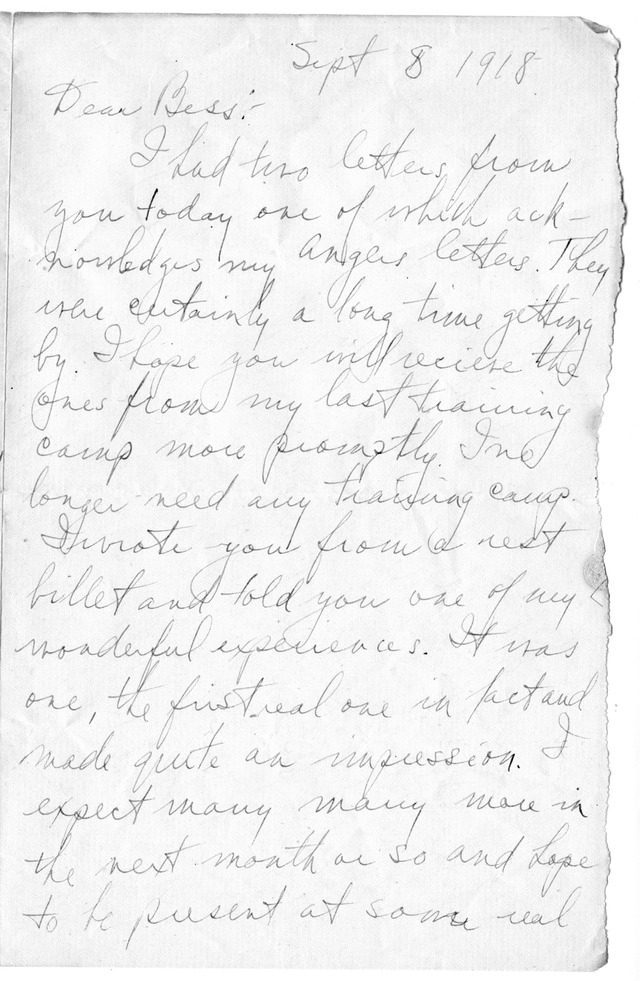 Sept 8 1918
Dear Bess:-
I had two letters from
you today one of which ack-
nowledges my Angers letters. They
were certainly a long time getting
by. I hope you will recieve the
ones from my last training
camp more promptly. I no
longer need any training camp.
I wrote you from a rest
billet and told you one of my
wonderful experiences. It was
one, the first real one in fact and
made quite an impression. I
expect many many more in
the next month or so and hope
to be present at some real